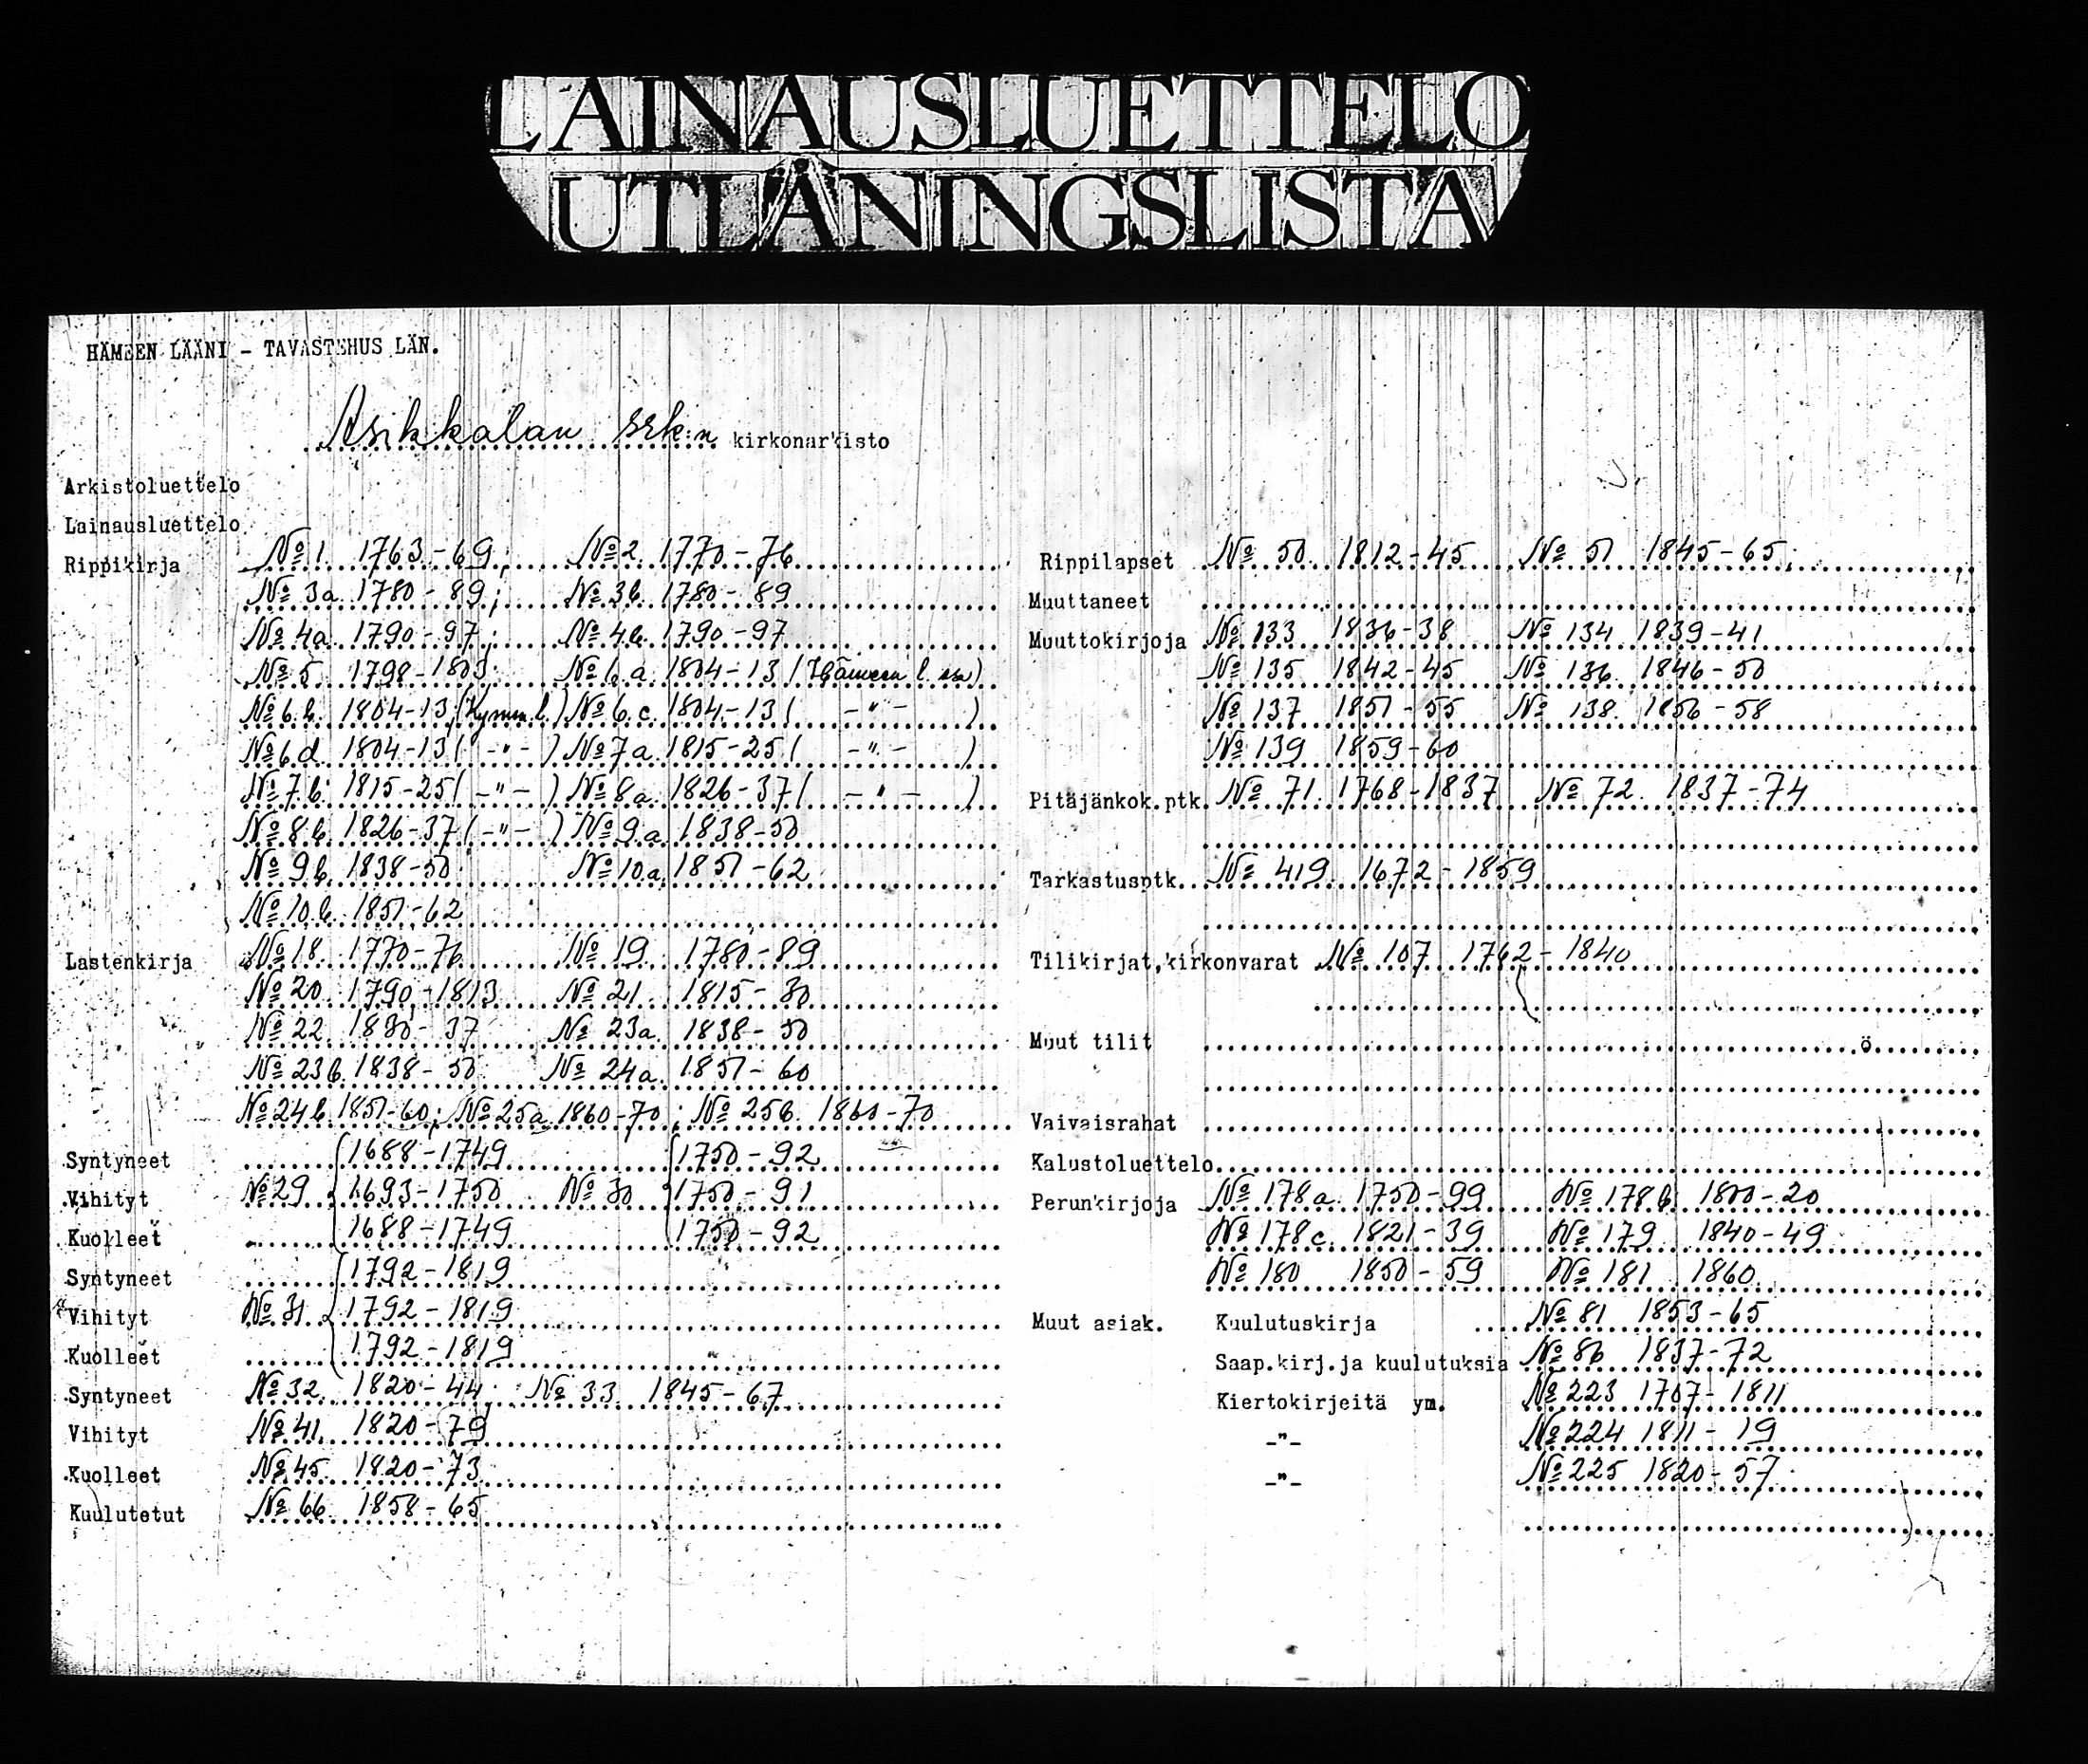 LAINAUSLUETTELO
UTLÅNINGSLISTA
HÄMEEN LÄÄNI - TAVASTEHUS LÄN.
Asikkalan srk:n kirkonarkisto
Arkistoluettelo
Lainausluettelo
Rippikirja № 1 1763-69; № 2 1770-76
№ 3a 1780-89; № 3b 1780-89
№ 4a 1790-97; № 4b 1790-97
№ 5 1798-1803 № 6a 1804-13 (Hämeen l.
№ 6b 1804-13 (Kymen l.) № 6c 1804-13 ( -"- )
№ 6d 1804-13 ( -"- ) № 7a 1815-25 ( -"- )
№ 7b 1815-25 ( -"- ) № 8a 1826-37 ( -"- )
№ 8b 1826-37 ( -"- ) № 9a 1838-50
№ 9b 1838-50 № 10a 1851-62
№ 10b 1851-62
Lastenkirja № 18 1770-76 № 19 1780-89
№ 20 1790-1813 № 21 1815-30
№ 22 1830-37 № 23a 1838-50
№ 23b 1838-50 № 24a 1851-60
№ 24b 1851-60; № 25a 1860-70; № 25b 1860-70
Syntyneet 1688-1749 1750-92
Vihityt № 29 1693-1750 № 30 1750-91
Kuolleet 1688-1749 1750-92
Syntyneet 1792-1819
Vihityt № 31 1792-1819
Kuolleet 1792-1819
Syntyneet № 32 1820-44 № 33 1845-67
Vihityt № 41 1820-79
Kuolleet № 45 1820-73
Kuulutetut № 66 1858-65
Rippilapset № 50 1812-45 № 51 1845-65;
Muuttaneet
Muuttokirjoja № 133 1836-38 № 134 1839-41
№ 135 1842-45 № 136 1846-50
№ 137 1851-55 № 138 1856-58
№ 139 1859-60
Pitäjänkok.ptk. № 71 1768-1837 № 72 1837-74
Tarkastusptk. № 419 1672-1859
Tilikirjat,kirkonvarat № 107 1762-1840
Muut tilit ö
Vaivaisrahat
Kalustoluettelo
Perunkirjoja № 178a 1750-99 № 178b 1800-20
№ 178c 1821-39 № 179 1840-49
№ 180 1850-59 № 181 1860
Muut asiak. Kuulutuskirja № 81 1853-65
Saap.kirj.ja kuulutuksia № 86 1837-72
Kiertokirjeitä ym. № 223 1707-1811
-"- № 224 1811-19
-"- № 225 1820-57